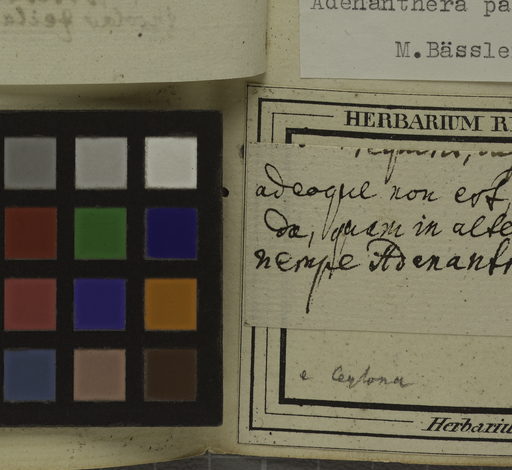 Adenanthera pa
M.Bässle
HERBARIUM R
adeoque non est,
da, quam in alte
nempe Adenant
e Ceylona
Herbariu